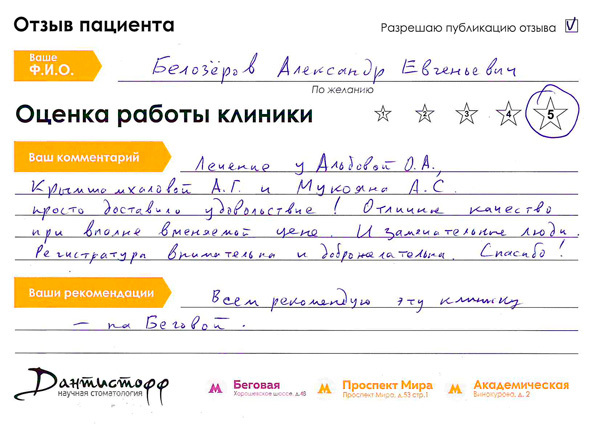 Отзыв пациента
Разрешаю публикацию отзыва
Ваше Ф.И.О.
Белозёров Александр Евгеньевич
По желанию
Оценка работы клиники
1 2 3 4 5
Ваш комментарий
Лечение у Альбовой О.А.,
Крымшамхаловой А.Г. и Мукояна А.С.
просто доставило удовольствие! Отличное качество
при вполне вменяемой цене. И замечательные люди.
Регистратура внимательна и доброжелательна. Спасибо!
Ваши рекомендации
Всем рекомендую эту клинику
– на Беговой.
Дантистофф
научная стоматология
М Беговая
Хорошевское шоссе, д.48
М Проспект Мира
Проспект Мира, д.53 стр.1
М Академическая
Винокурова, д. 2